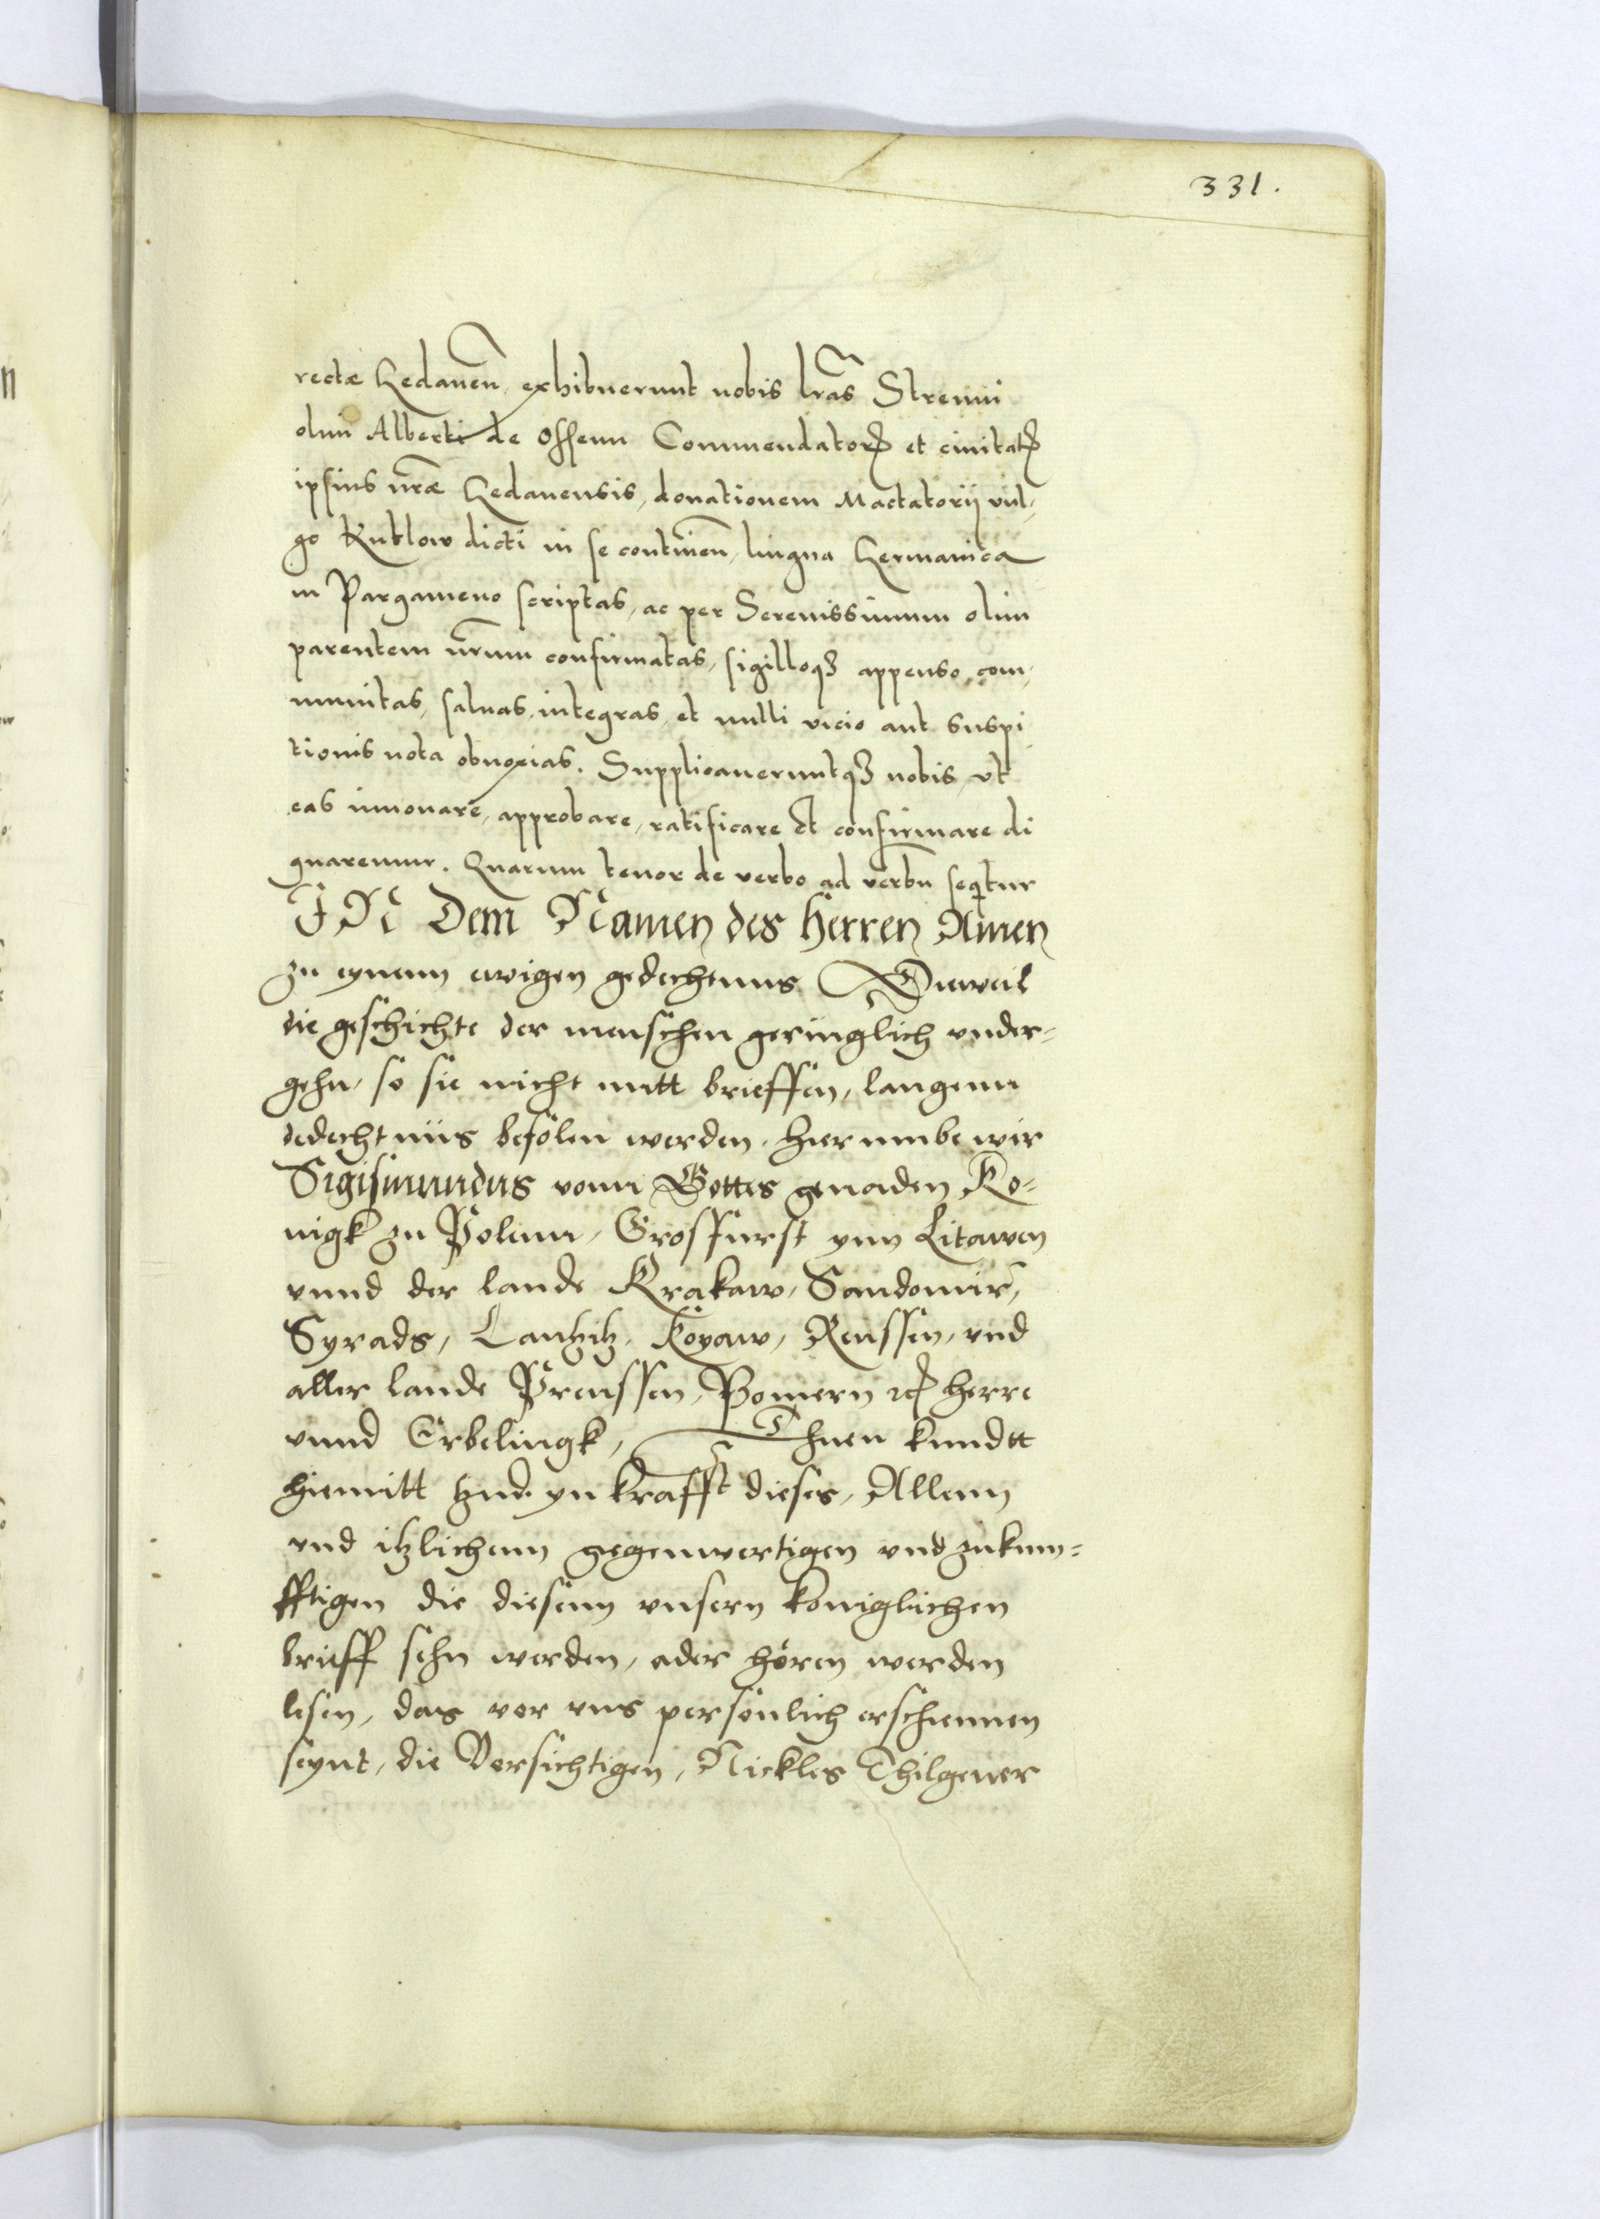 331.
rectæ Gedanen̄, exhibuerunt nobis lr̃as Strenui
olim Alberti de Ossenn Commendatoris et ciuitatis
ipsius nr̃æ Gedanensis, donationem Mactatorij vul-
go Kuttlow dicti in se continen̄, lingua Germanica
in Pargameno scriptas, ac per Serenissimum olim
parentem nr̃um confirmatas, sigilloq3 appenso com-
munitas, saluas, integras, et nulli vicio aut suspi
tionis nota obnoxias. Supplicaueruntq3 nobis, vt
eas innouare, approbare, ratificare et confirmare di
gnaremur. Quarum tenor de verbo ad verbū seqitur
IN Dem Namen des Herren Amen
zu eynem ewigen gedechtnus Dieweil
die geschichte der menschen geringlich vnder-
gehn, so sie nicht mitt brieffen, langenn
dedechtnüs befolen werden, hier umbe wir
Sigismundus vonn Gottes genaden Ko-
nigk zu Polenn, Grosfurst ynn Litawen
vnnd der lande Krakaw, Sandomir,
Syrads, Lantzitz, Koyaw, Reussen, vnd
aller lande Preussen, Pomern ꝛc herre
vnnd Erbelingk, Thuen kundtt
hiemitt vnd yn krafft dieses, Allenn
vnd itzlichenn gegenwertigen vnd zukum-
fftigen die diesenn vnsern koniglichen
brieff sehn werden, ader hören werden
lesen, das vor vns personlich erschiennen
seynt, die Vorsichtigen, Nickles Thilgener